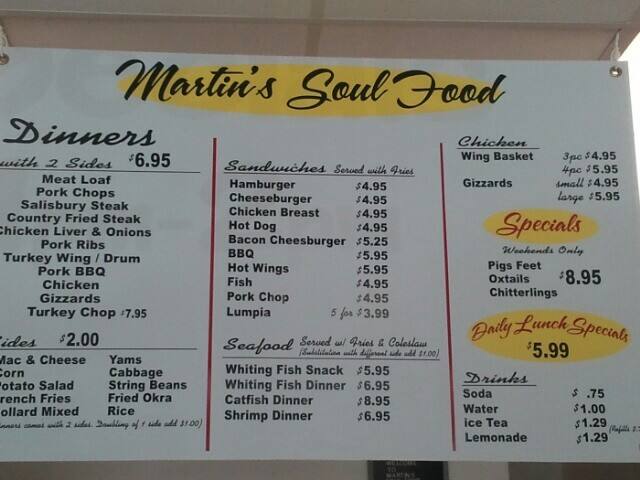 Martin's Soul Food
Dinners
with 2 Sides $6.95
Meat Loaf
Pork Chops
Salisbury Steak
Country Fried Steak
Chicken Liver & Onions
Pork Ribs
Turkey Wing / Drum
Pork BBQ
Chicken
Gizzards
Turkey Chop $7.95
ides $2.00
Mac & Cheese Yams
Corn Cabbage
Potato Salad String Beans
French Fries Fried Okra
ollard Mixed Rice
inners comes with 2 sides. Doubling of 1 side add $1.00)
Sandwiches Served with Fries
Hamburger $4.95
Cheeseburger $4.95
Chicken Breast $4.95
Hot Dog $4.95
Bacon Cheesburger $5.25
BBQ $5.95
Hot Wings $5.95
Fish $4.95
Pork Chop $4.95
Lumpia 5 for $3.99
Seafood Served w/ Fries & Coleslaw
(Substitution with different side add $1.00)
Whiting Fish Snack $5.95
Whiting Fish Dinner $6.95
Catfish Dinner $8.95
Shrimp Dinner $6.95
Chicken
Wing Basket 3pc $4.95
4pc $5.95
Gizzards small $4.95
large $5.95
Specials
Weekends Only
Pigs Feet
Oxtails $8.95
Chitterlings
Daily Lunch Specials
$5.99
Drinks
Soda $ .75
Water $1.00
ice Tea $1.29 (Refills
Lemonade $1.29
WELCOME
TO
MARTIN'S